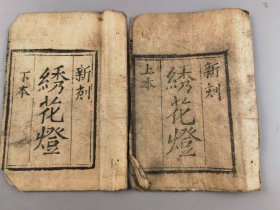 新刻
綉花燈
上本
新刻
綉花燈
下本